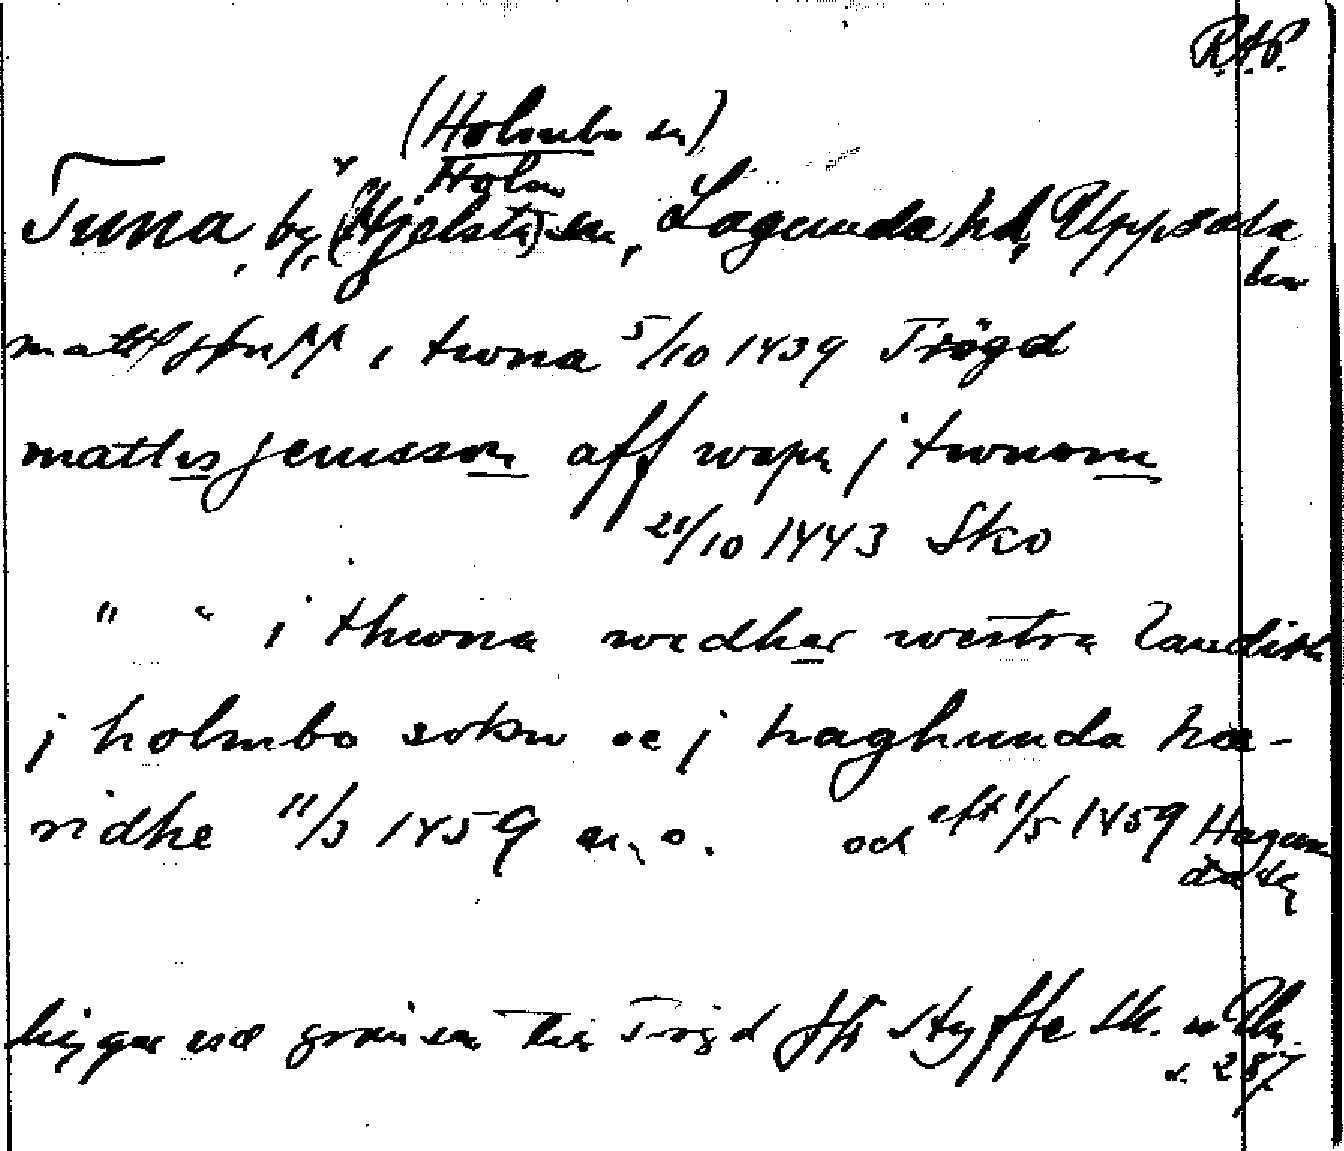 R.A.P.
(Holmbo sn)
Holm
Tuna, by, (Hjelsta) sn, Lagunda hd, Uppsala
län
i twna 5/10 1439 Trögd
mattis jenisson aff wapn j twnom
21/10 1443 Sko
" " i thwna wedher westra landith
j holmbo sokn oc j haghunda hæ-
ridhe 11/3 1459 o. och 1/5 1459 Hagun
da
ligger vid gränsen till Trögd jfr Styffe Sk. u
s. 287